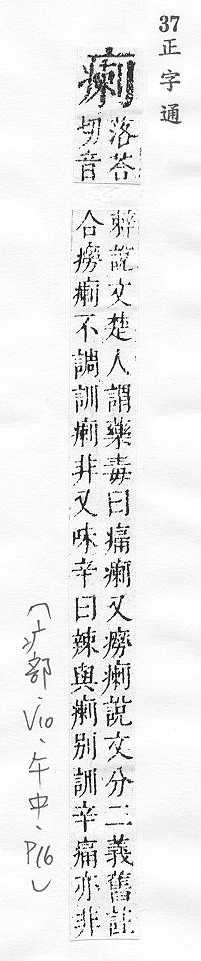 37正字通
瘌
落荅
切音
辢說文楚人謂藥毒曰痛瘌又癆瘌說文分二義舊註
合癆瘌不調訓瘌非又味辛曰辣與瘌別訓辛痛亦非
(疒部、V10、午中、P16)